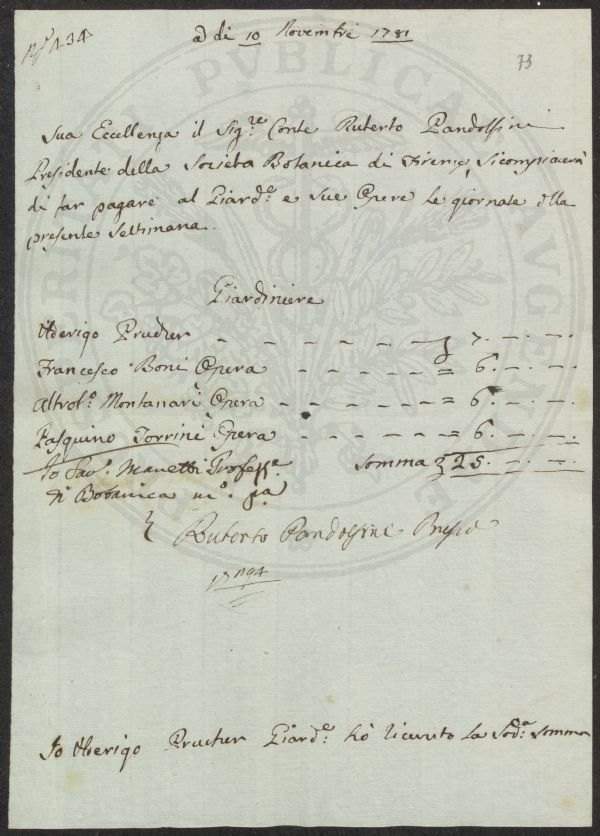 N.º 434
a di 10 Novembre 1781
73
Sua Eccellenza il Sig.re Conte Ruberto Pandolfini
Presidente della Societa Botanica di Firenze, Si compiacerà
di far pagare al Giard.e e sue Opere le giornate della
presente Settimana.
Giardiniere
Uderigo Prucher - - - - - - - 7. - . - .
Francesco Boni Opera - - - - - - = 6. - . - .
Altrol.o Montanari Opera - - - - - - = 6. - . - .
Pasquino Torrini Opera - - - - - = 6. - . - .
Io Sav. Manetti Profess.e Somma 25. - . - .
di Botanica m.o p.a
Ruberto Pandolfini Presid.e
Io Uderigo Prucher Giard.e hò riceuuto la Sod.a Somma
PVBLICA